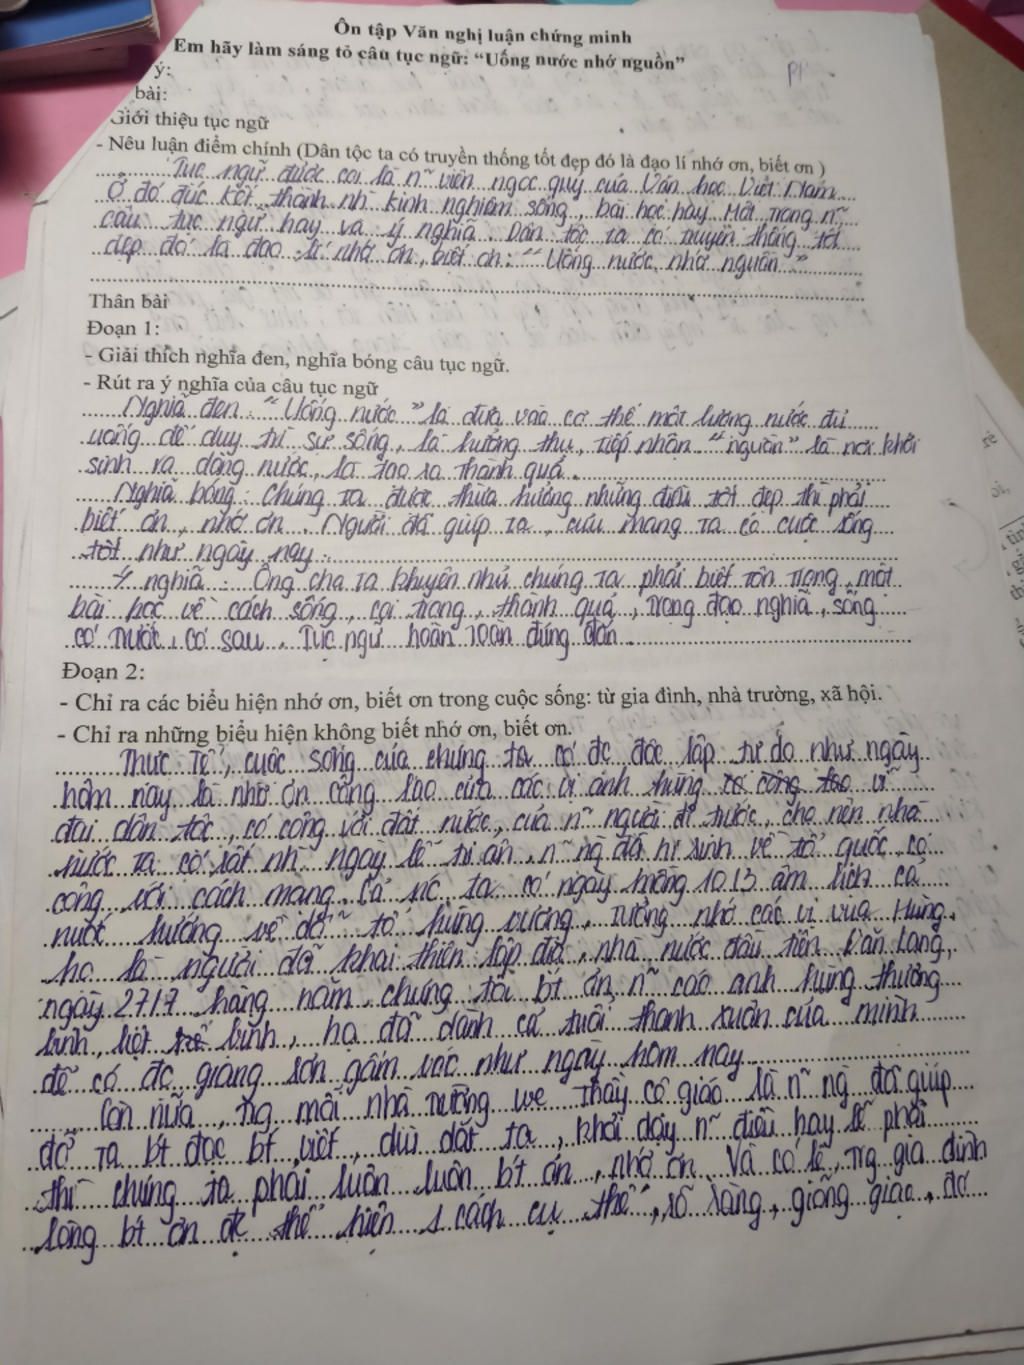 Ôn tập Văn nghị luận chứng minh
Em hãy làm sáng tỏ câu tục ngữ: “Uống nước nhớ nguồn”
ý:
bài:
Giới thiệu tục ngữ
- Nêu luận điểm chính (Dân tộc ta có truyền thống tốt đẹp đó là đạo lí nhớ ơn, biết ơn )
Tục ngữ được coi là n~ viên ngọc quý của Văn học Việt Nam
Ở đó đúc kết thành nh kinh nghiệm sống, bài học hay. Một trong n~
câu tục ngữ hay và ý nghĩa. Dân tộc ta có truyền thống tốt
đẹp đó là đạo lí nhớ ơn, biết ơn: “Uống nước nhớ nguồn”
Thân bài
Đoạn 1:
- Giải thích nghĩa đen, nghĩa bóng câu tục ngữ.
- Rút ra ý nghĩa của câu tục ngữ
Nghĩa đen: “Uống nước” là đưa vào cơ thể một lượng nước đủ
uống để duy trì sự sống, là hưởng thụ, tiếp nhận “nguồn” là nơi khởi
sinh ra dòng nước, là tạo ra thành quả.
Nghĩa bóng: Chúng ta được thừa hưởng những điều tốt đẹp thì phải
biết ơn, nhớ ơn. Người đã giúp ta, cưu mang ta có cuộc sống
tốt như ngày nay.
Ý nghĩa: Ông cha ta khuyên nhủ chúng ta phải biết tôn trọng, một
bài học về cách sống, coi trọng, thành quả, trọng đạo nghĩa, sống
có trước, có sau. Tục ngữ hoàn toàn đúng đắn
Đoạn 2:
- Chỉ ra các biểu hiện nhớ ơn, biết ơn trong cuộc sống: từ gia đình, nhà trường, xã hội.
- Chỉ ra những biểu hiện không biết nhớ ơn, biết ơn.
Thực tế, cuộc sống của chúng ta có đc độc lập tự do như ngày
hôm nay là nhờ ơn công lao của các vị anh hùng vĩ
đại dân tộc, có công với đất nước, của n~ người đi trước, cho nên nhà
nước ta có rất nh ngày lễ tri ân, n~ ng đã hi sinh vì tổ quốc có
công với cách mạng. ta có ngày mồng 10.13 âm lịch cả
nước hướng về tổ hùng vương, tưởng nhớ các vị vua Hùng,
họ là người đã khai thiên lập địa, nhà nước đầu tiên Văn Lang,
ngày 27.17 hàng năm, chúng tôi bt ơn n~ anh hùng thương
binh, liệt binh, họ đã dành cả tuổi thanh xuân của mình
để có đc giang sơn gấm vóc như ngày hôm nay
Còn nữa, ng mái nhà trường thầy cô giáo là n~ ng đã giúp
đỡ ta bt đọc bt viết, dìu dắt ta, khơi dậy n~ điều hay lẽ phải
thì chúng ta phải luôn luôn bt ơn, nhớ ơn. Và có lẽ, trg gia đình
lòng bt ơn đc thể hiện 1 cách cụ thể, rõ ràng,